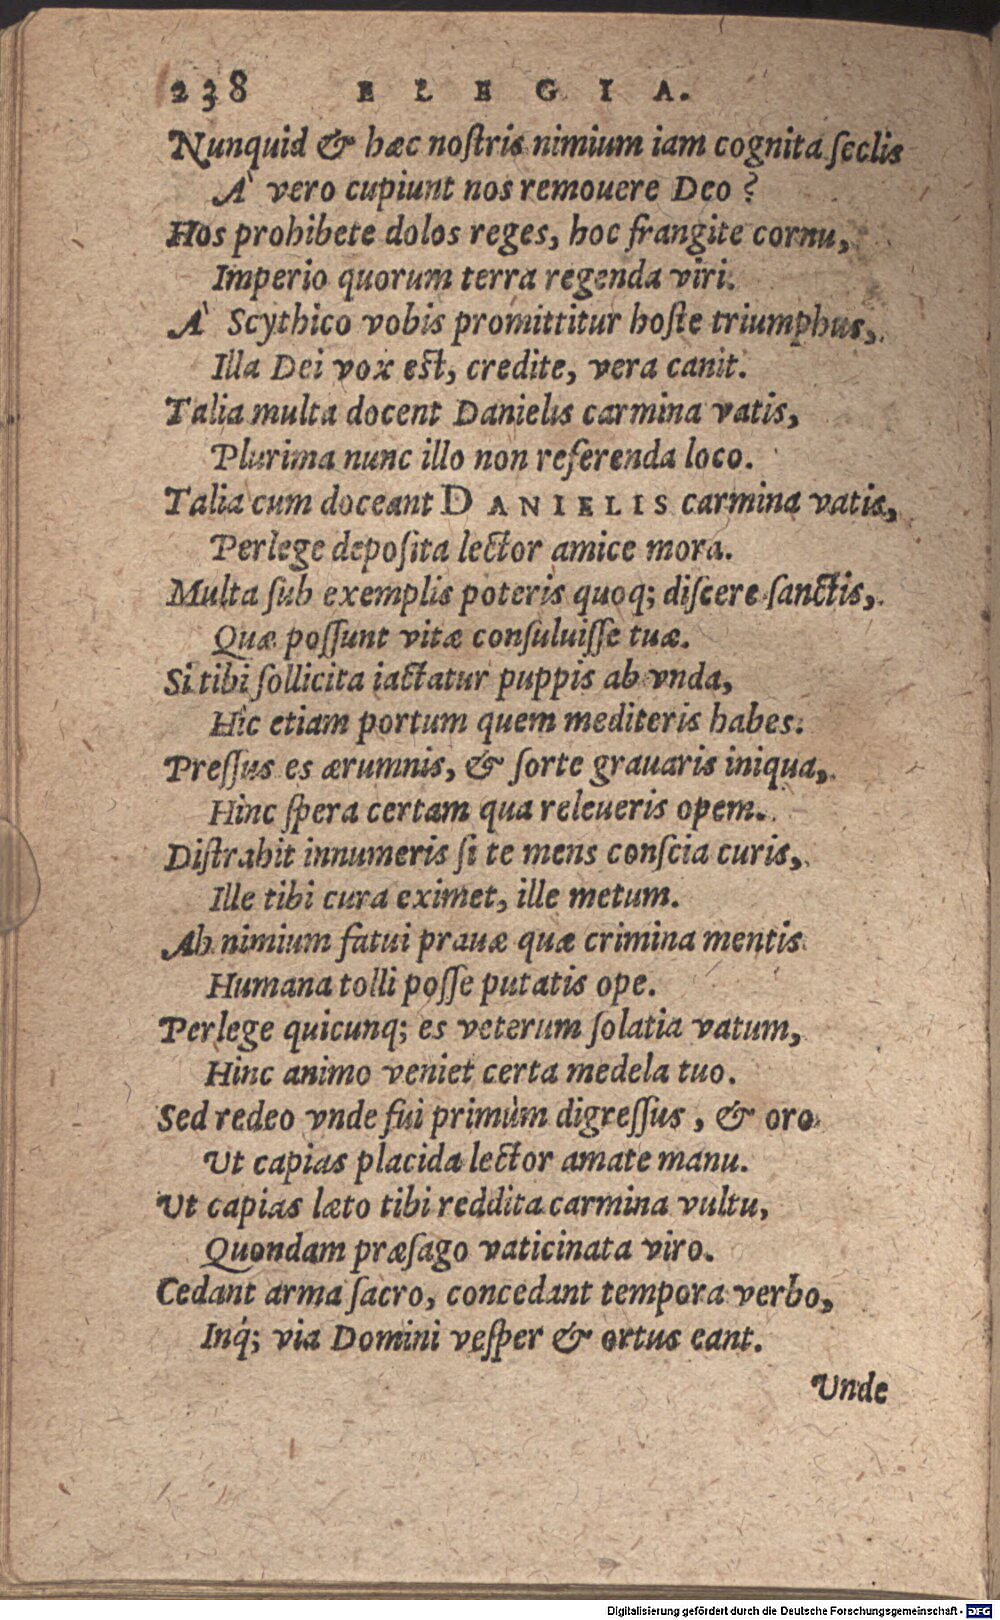 238 ELEGIA.
Nunquid & hæc nostris nimium iam cognita seclis
À vero cupiunt nos remouere Deo?
Hos prohibete dolos reges, hoc frangite cornu,
Imperio quorum terra regenda viri.
À Scythico vobis promittitur hoste triumphus,
Illa Dei vox est, credite, vera canit.
Talia multa docent Danielis carmina vatis,
Plurima nunc illo non referenda loco.
Talia cum doceant DANIELIS carmina vatis,
Perlege deposita lector amice mora.
Multa sub exemplis poteris quoq; discere sanctis,
Quæ possunt vitæ consuluisse tuæ.
Si tibi sollicita iactatur puppis ab vnda,
Hîc etiam portum quem mediteris habes.
Pressus es ærumnis, & sorte grauaris iniqua,
Hinc spera certam qua releueris opem.
Distrahit innumeris si te mens conscia curis,
Ille tibi cura eximet, ille metum.
Ah nimium fatui prauæ quæ crimina mentis
Humana tolli posse putatis ope.
Perlege quicunq; es veterum solatia vatum,
Hinc animo veniet certa medela tuo.
Sed redeo vnde fui primùm digressus, & oro
Ut capias placida lector amate manu.
Ut capias læto tibi reddita carmina vultu,
Quondam præsago vaticinata viro.
Cedant arma sacro, concedant tempora verbo,
Inq́; via Domini vesper & ortus eant.
Unde
Digitalisierung gefördert durch die Deutsche Forschungsgemeinschaft - DFG